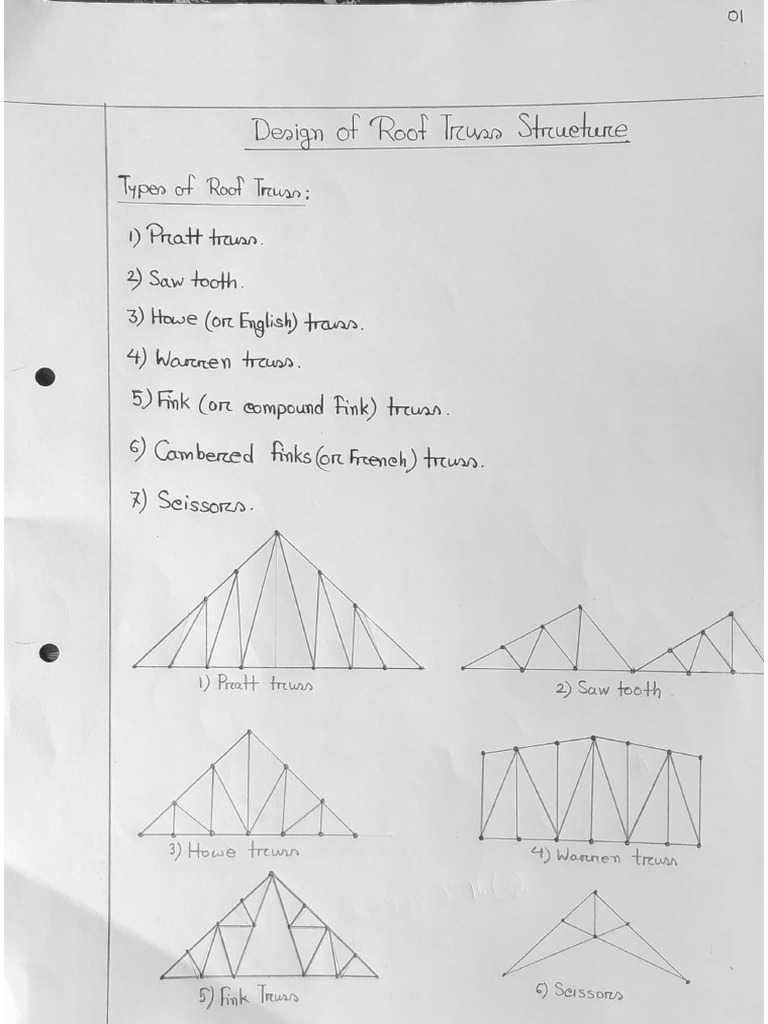 01
Design of Roof Truss Structure
Types of Roof Truss:
1) Pratt truss.
2) Saw tooth.
3) Howe (or English) truss.
4) Warren truss.
5) Fink (or compound fink) truss.
6) Cambered finks (or French) truss.
7) Scissors.
1) Pratt truss
2) Saw tooth.
3) Howe truss
4) Warren truss
5) Fink Truss
6) Scissors